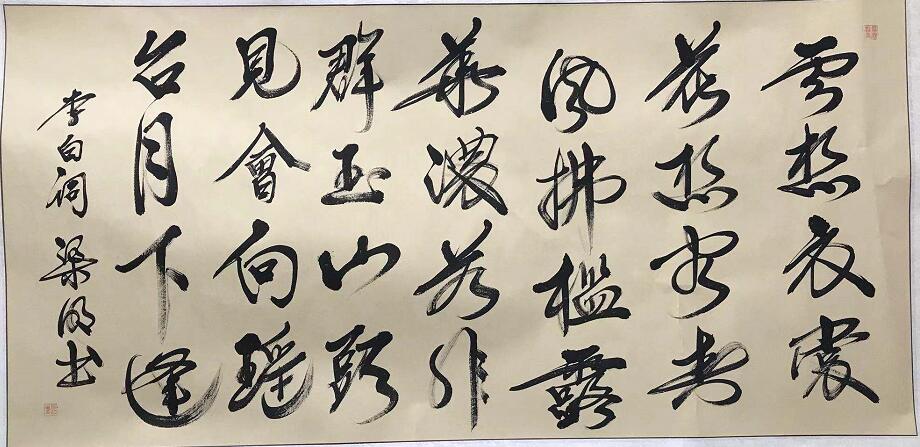 雲想衣裳
花想容春
風拂檻露
華濃若非
群玉山頭
見會向瑤
台月下逢
李白词 梁书